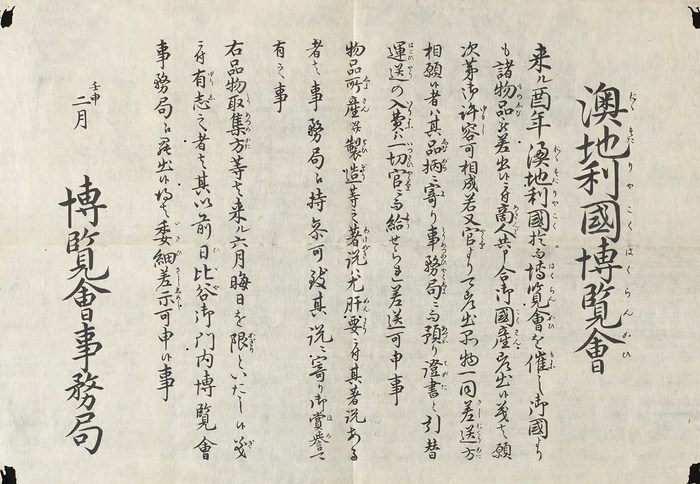 澳地利國博覽會
来ル酉年澳地利國於而博覧會を催し御國より
も諸物品を差出候ニ付商人共申合御國産差出候義ハ願
次第御許容可相成若又官より可差出品物一同差送方
相願候者ハ其品柄ニ寄り事務局ニ而預り證書と引替
運送の入費ハ一切官ニ而給せられ差送可申事
物品所産并製造等之著説尤肝要ニ付其著説ある
者ハ事務局江持参可致其説ニ寄り御賞誉可
有之事
右品物取集方等ハ来ル六月晦日を限といたし候義ニ
付有志之者ハ其以前日比谷御門内博覧會
事務局江罷出候ハヽ委細差示可申候事
壬申
二月
博覧會事務局